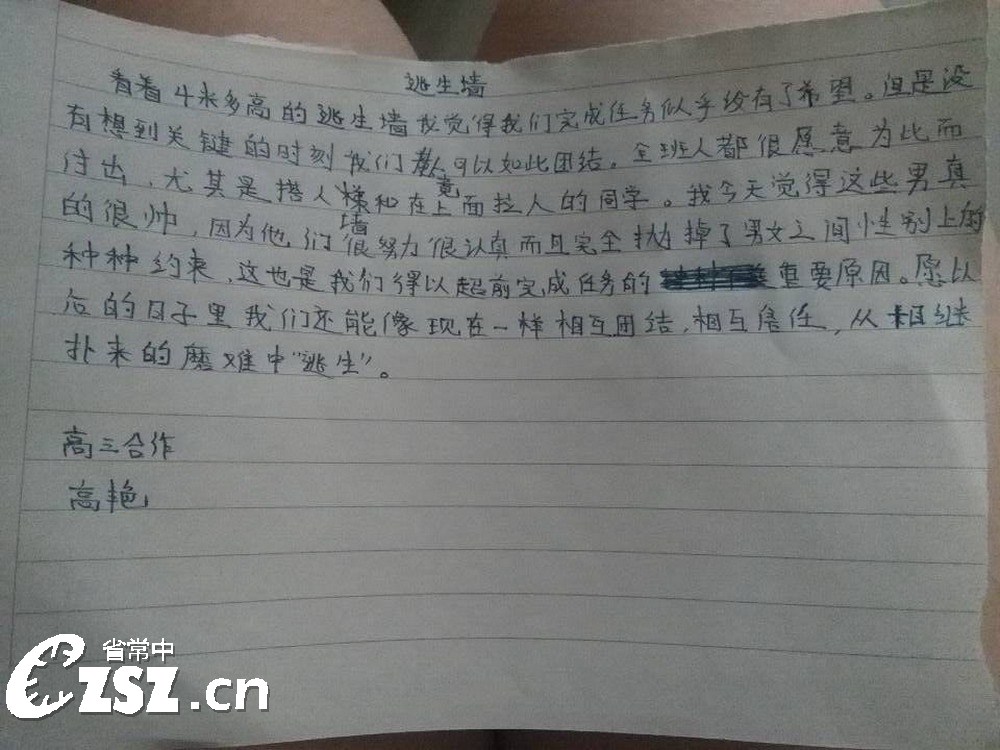 逃生墙
看着4米多高的逃生墙我觉得我们完成任务似乎没有了希望。但是没
有想到关键的时刻我们竟可以如此团结。全班人都很愿意为此而
付出，尤其是搭人梯和在墙上面拉人的同学。我今天觉得这些男真
的很帅，因为他们很努力很认真而且完全抛掉了男女之间性别上的
种种约束，这也是我们得以超前完成任务的重要原因。愿以
后的日子里我们还能像现在一样相互团结，相互信任，从相继
扑来的磨难中“逃生”。
高三合作
高艳
省常中
CZSZ.cn